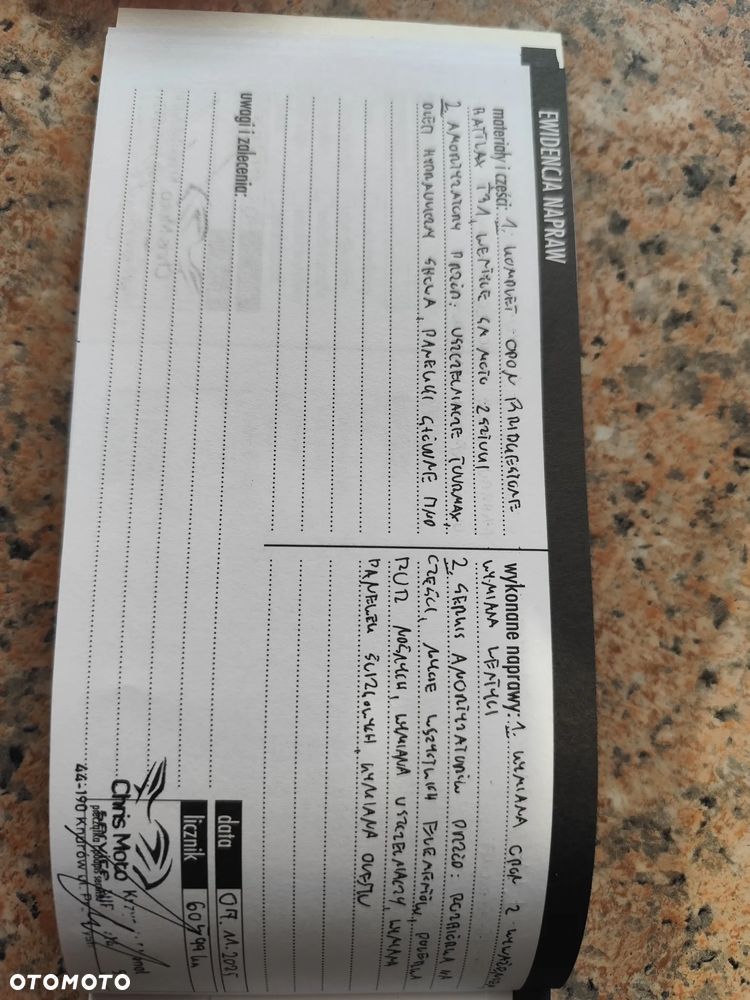 EWIDENCJA NAPRAW
materiały i części: 1. KOMPLET OPON BRIDGESTONE
BATTLAX T31, WENTYLE SA MOTO 2 SZTUKI
2. AMORTYZATORY PRZÓD: USZCZELNIACZE TOURMAX,
OLEJ HYDRAULICZNY SHOWA, PANEWKI GŁÓWNE PRO
uwagi i zalecenia:
wykonane naprawy: 1. WYMIANA OPON Z
WYMIANA WENTYLI
2. SERWIS AMORTYZATORÓW PRZÓD: ROZBIÓRKA NA
CZĘŚCI, MYCIE WSZYSTKICH ELEMENTÓW,
RUR NOŚNYCH, WYMIANA USZCZELNIACZY, WYMIANA
PANEWEK ŚLIZGOWYCH, WYMIANA OLEJU
data 07.11.2025
licznik 60599 km
Chris Moto
44-190 Knurów ul.
OTOMOTO